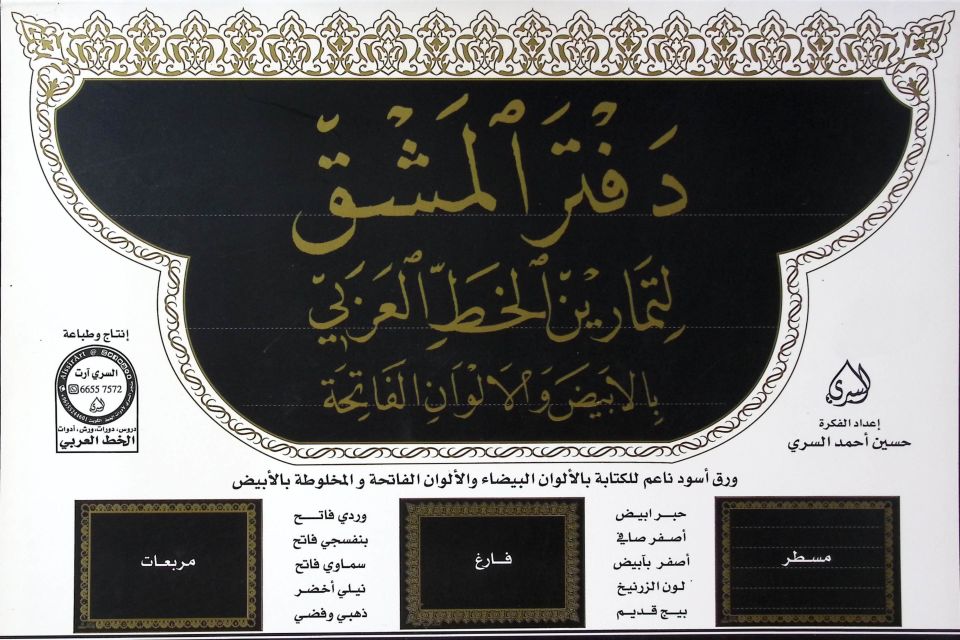 دفتر المشق
لتمارين الخط العربي
بالأبيض والألوان الفاتحة
إنتاج وطباعة
السري آرت
6655 7572
دروس، دورات، ورش، أدوات
الخط العربي
السري
إعداد الفكرة
حسين أحمد السري
ورق أسود ناعم للكتابة بالألوان البيضاء والألوان الفاتحة و المخلوطة بالأبيض
حبر ابيض
أصفر صافي
أصفر بأبيض
لون الزرنيخ
بيج قديم
وردي فاتح
بنفسجي فاتح
سماوي فاتح
نيلي أخضر
ذهبي وفضي
مسطر
فارغ
مربعات